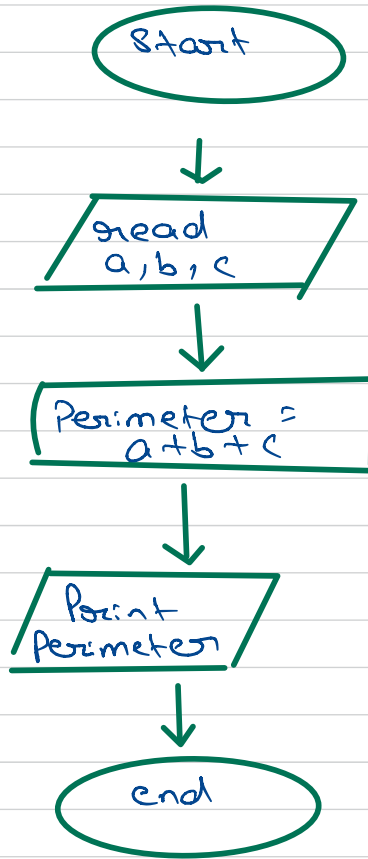 Start
read
a, b, c
Perimeter =
a + b + c
Print
Perimeter
end